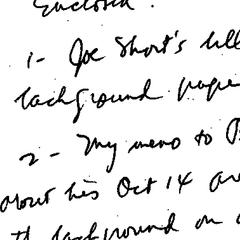 Enclosed.
1- Joe Short's
background paper
2- My memo to
about his Oct 14
background on